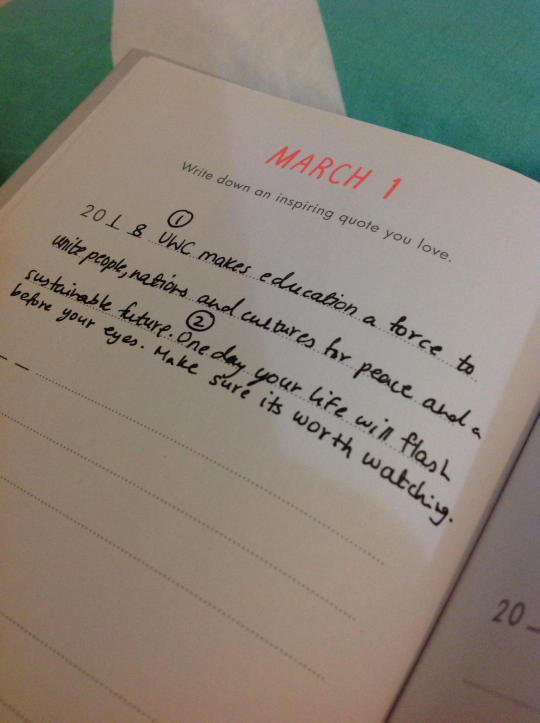 MARCH 1
Write down an inspiring quote you love.
2018 ① UWC makes education a force to
unite people, nations and cultures for peace and a
sustainable future. ② One day your life will flash
before your eyes. Make sure its worth watching.
20